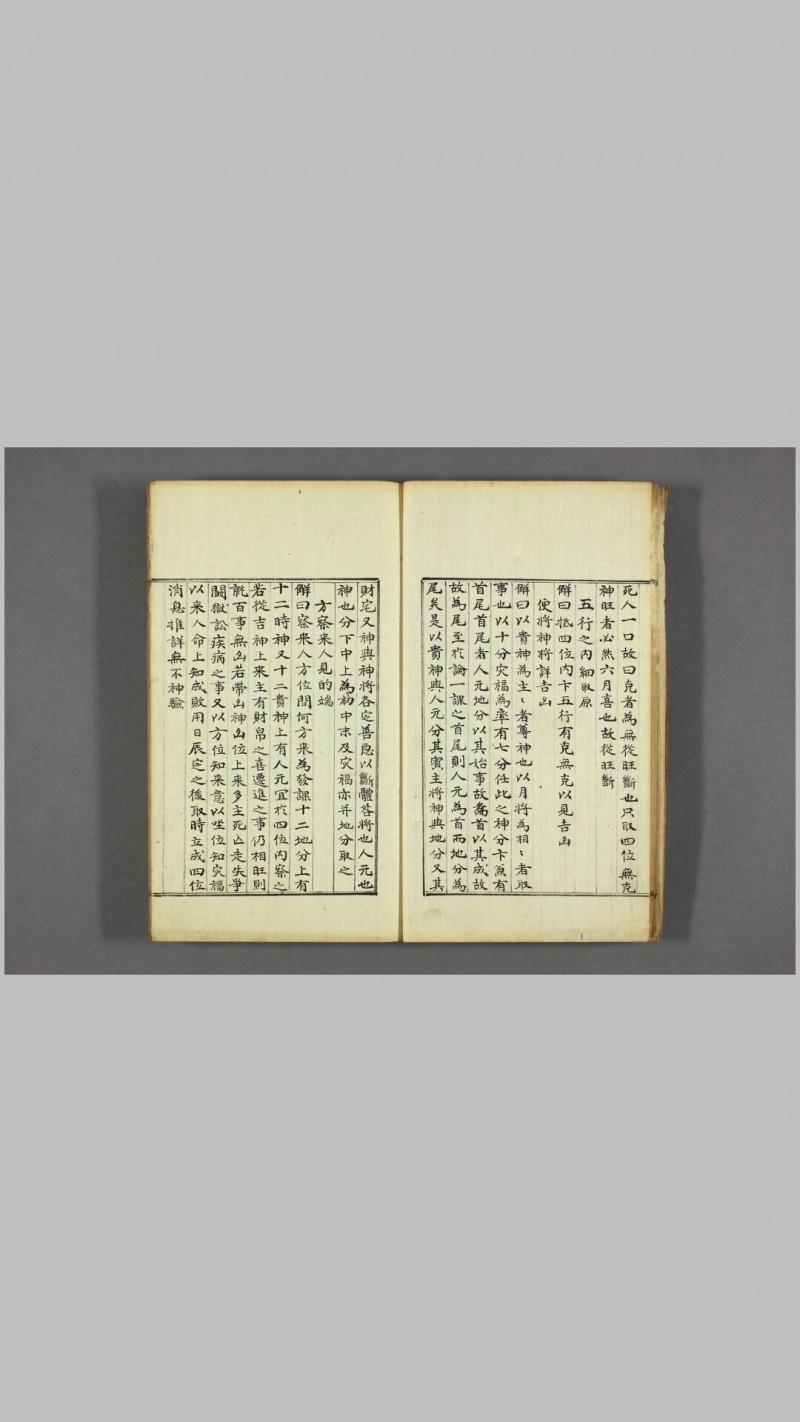 死人一口故曰克者為無從旺斷也只取四位無克
神旺者必然六月喜也故從旺斷
五行之內細取原
解曰抵四位內卞五行有克無克以見吉凶
便將神將詳吉凶
解曰以貴神為主〻者尊神也以月將為相〻者取
事也以十分灾福為率有七分任此之神分卞煞有
首尾首尾者人元地分以其始事故為首以其成故
故為尾至於論一課之首尾則人元為首而地分為
尾矣是以貴神與人元分其賓主將神與地分又其
財宅又神與神將各定善惡以斷體咎將也人元也
神也分下中上為初中末及灾福亦并地分取之
方察来人見的端
解曰察来人方位問何方来為發課十二地分上有
十二時神又十二貴神上有人元宜於四位內察之
若從吉神上来主有財帛之喜遷進之事仍相旺則
說百事無凶若帶凶神凶位上来多主死亾走失爭
鬪獄訟疾病之事又以方位知来意以坐位知灾福
以来人命上知成敗用日辰定之後取時立成四位
消息推詳無不神驗